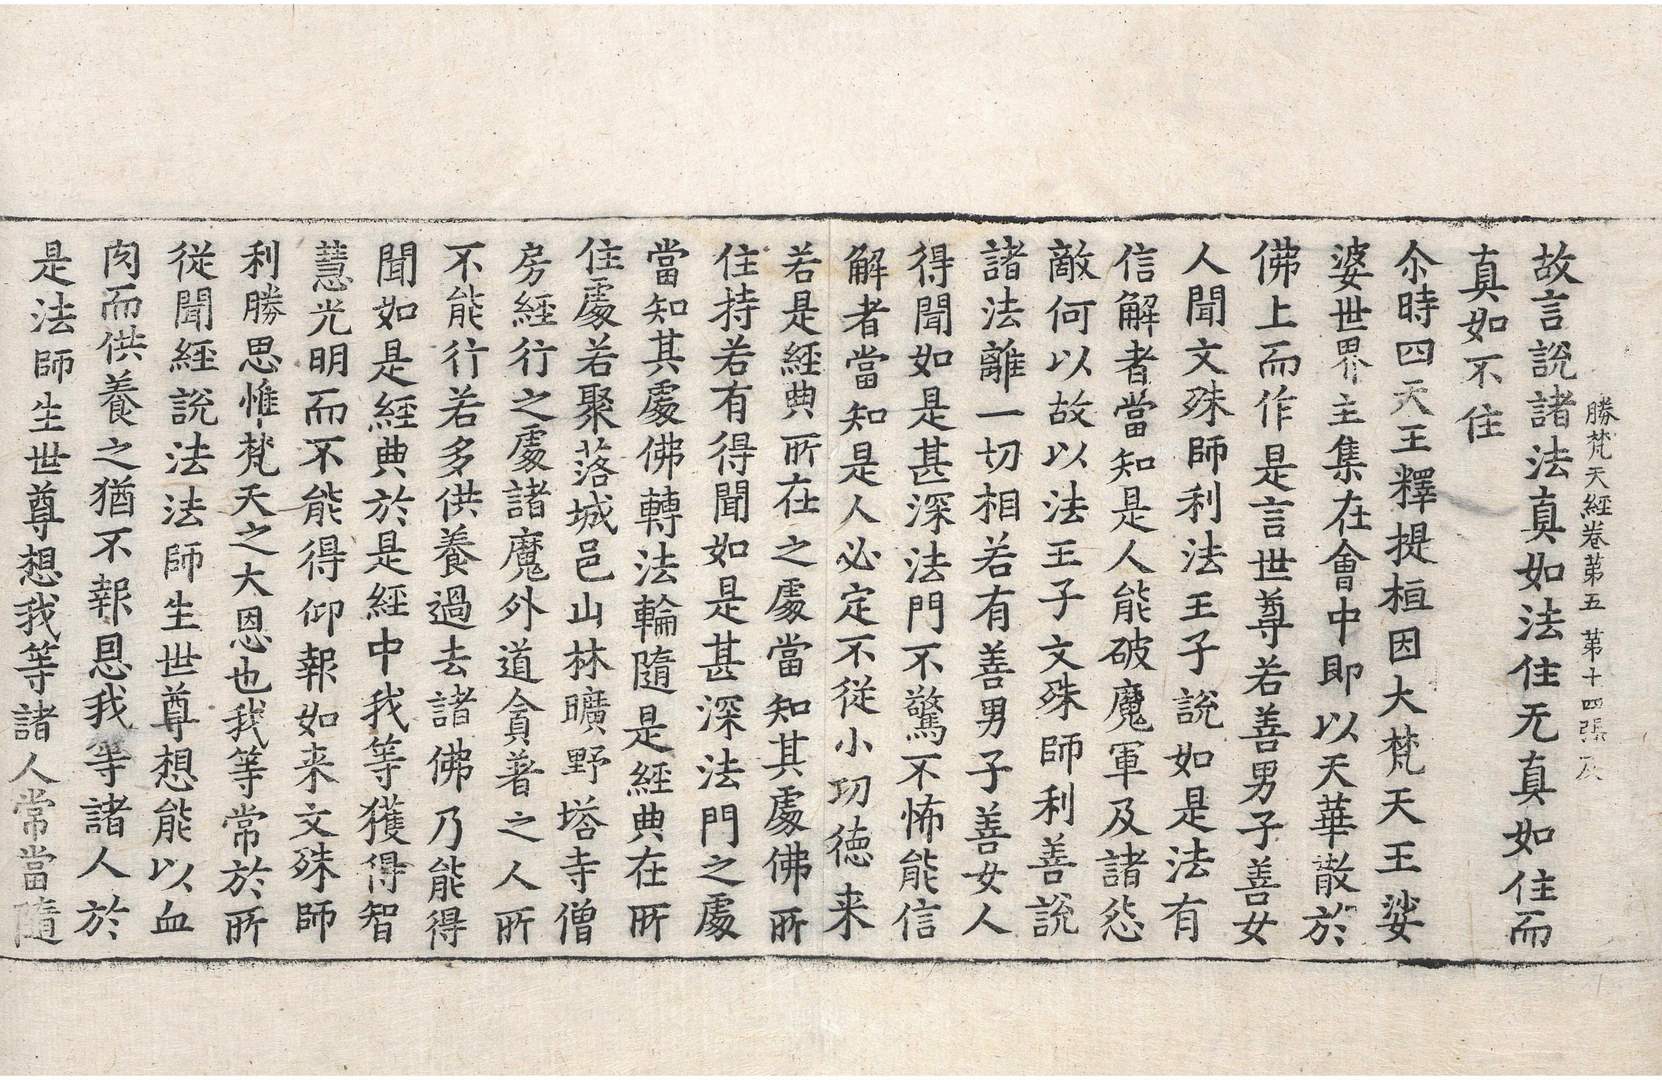 勝梵天經卷第五 第十四張 及
故言說諸法真如法住无真如住而
真如不住
尒時四天王釋提桓因大梵天王娑
婆世界主集在會中即以天華散於
佛上而作是言世尊若善男子善女
人聞文殊師利法王子說如是法有
信解者當知是人能破魔軍及諸惌
敵何以故以法王子文殊師利善說
諸法離一切相若有善男子善女人
得聞如是甚深法門不驚不怖能信
解者當知是人必定不從小功德来
若是經典所在之處當知其處佛所
住持若有得聞如是甚深法門之處
當知其處佛轉法輪隨是經典在所
住處若聚落城邑山林曠野塔寺僧
房經行之處諸魔外道貪著之人所
不能行若多供養過去諸佛乃能得
聞如是經典於是經中我等獲得智
慧光明而不能得仰報如来文殊師
利勝思惟梵天之大恩也我等常於所
從聞經說法法師生世尊想能以血
肉而供養之猶不報恩我等諸人於
是法師生世尊想我等諸人常當隨